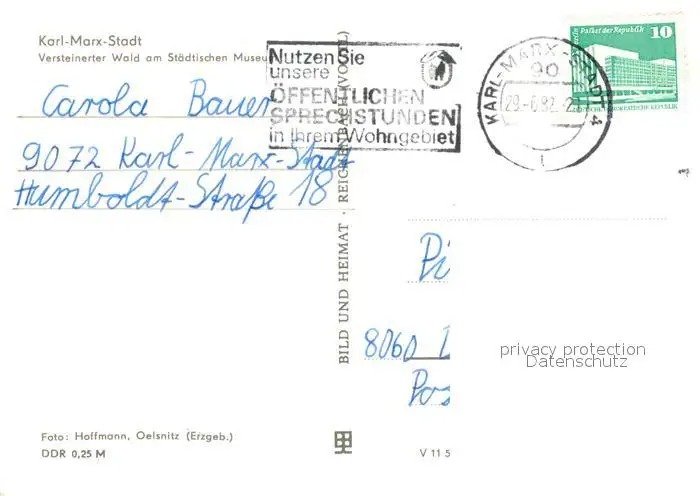 Karl-Marx-Stadt
Versteinerter Wald am Städtischen Museu
Carola Bauer
9072 Karl-Marx-Stadt
Humboldt-Straße 18
Nutzen Sie
unsere
ÖFFENTLICHEN
SPRECHSTUNDEN
in Ihrem Wohngebiet
KARL-MARX-STADT 4
90
29.-6.82.-2
Palast der Republik 10
DEMOKRATISCHE REPUBLIK
BILD UND HEIMAT · REICHENBACH (VOGTL)
8060
Pos
privacy protection
Datenschutz
Foto: Hoffmann, Oelsnitz (Erzgeb.)
DDR 0,25 M
V 11 5